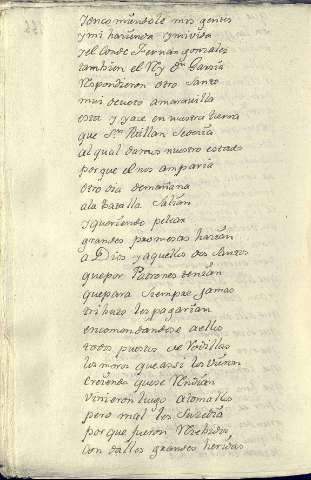 y encomiendole mis gentes
y mi hazienda y mi vida
y el Conde Fernan gonzalez
tambien el Rey dⁿ. Garcia
Respondieron otro Santo
mui devoto a maravilla
esta y yace en nuestra tierra
que Sⁿ. Millan Se deçia
al qual damos nuestro estado
porque el nos amparia
otro dia de mañana
a la batalla Salian
y queriendo pelear
grandes promesas hazian
a Dios y aquellos dos Santos
que por Patrones tenian
que para Siempre jamas
tributo les pagarian
encomendandose a ellos
todos puestos de Rodillas
los moros que assi los vieron
creiendo que se Rendian
vinieron luego a tomallos
pero mal les Suzedia
porque fueron Recebidos
con dalles grandes heridas